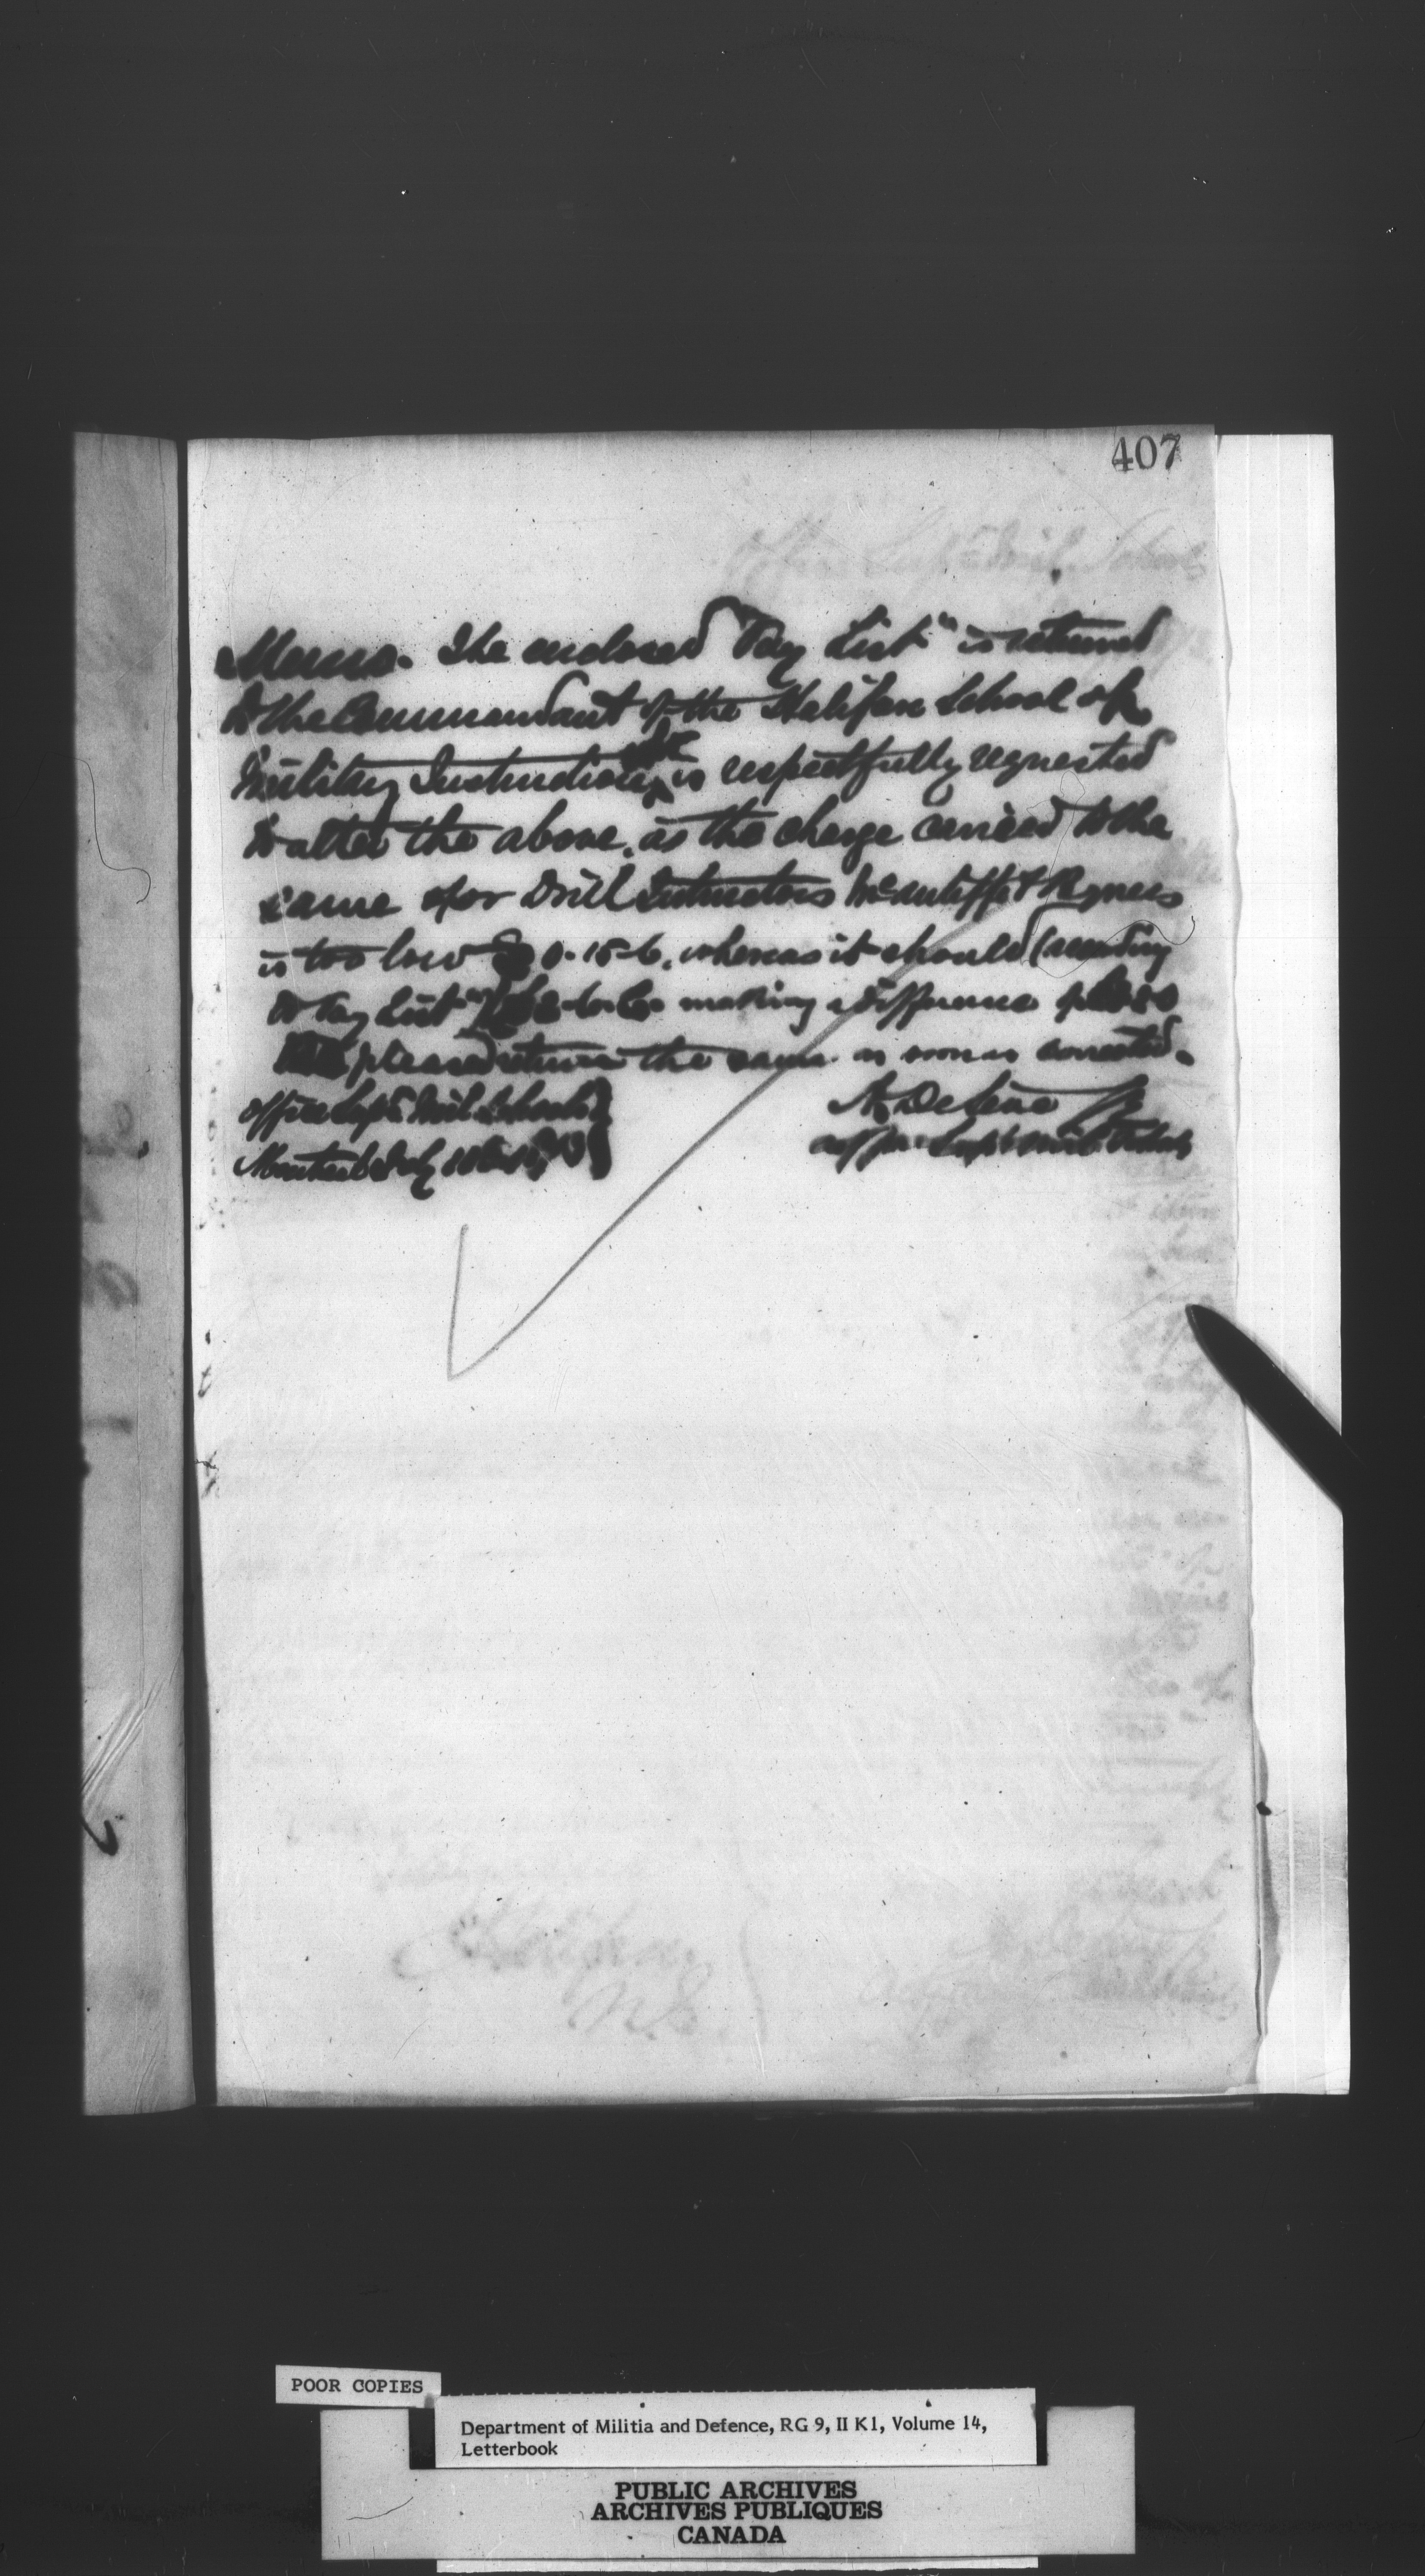 407
Memo. The enclosed "Pay List" is returned
to the Commandant of the Halifax School of
Military Instruction, who is respectfully requested
to alter the above, as the charge carried to the
same for Drill Instructors & Ryness
is too low 0-15-6, whereas it should (according
to Pay List" making a difference of
please return the same as soon as corrected.
Office Supt. Mil. Schools
Montreal July
A DeLéno Jr
Supt Mil Schools
POOR COPIES
Department of Militia and Defence, RG 9, II K1, Volume 14,
Letterbook
PUBLIC ARCHIVES
ARCHIVES PUBLIQUES
CANADA